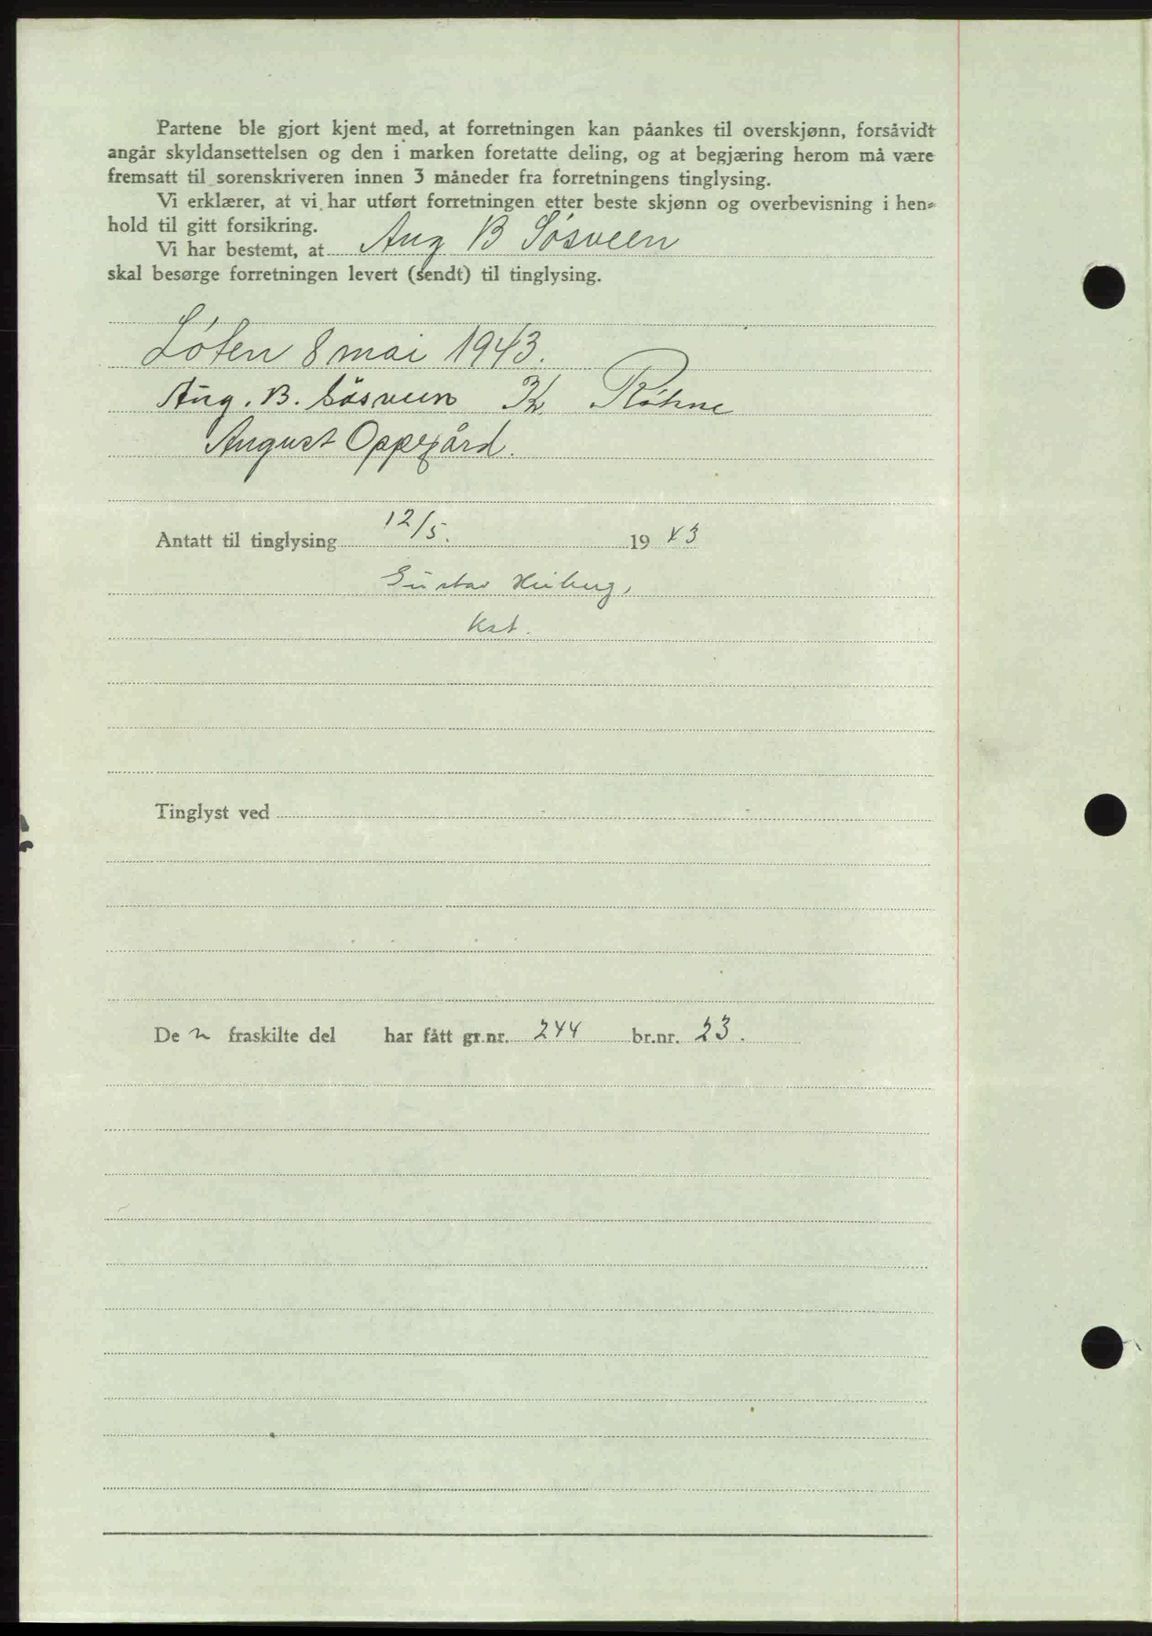 Partene ble gjort kjent med, at forretningen kan påankes til overskjønn, forsåvidt
angår skyldansettelsen og den i marken foretatte deling, og at begjæring herom må være
fremsatt til sorenskriveren innen 3 måneder fra forretningens tinglysing.
Vi erklærer, at vi har utført forretningen etter beste skjønn og overbevisning i hen-
hold til gitt forsikring.
Vi har bestemt, at Aug B Søsveen
skal besørge forretningen levert (sendt) til tinglysing.
Løten 8 mai 1943.
Aug. B. Søsveen K Røhne
August Oppegård.
Antatt til tinglysing 12/5. 19 43
Gustav Heiberg,
kst.
Tinglyst ved
De n fraskilte del har fått gr.nr. 244 br.nr. 23.